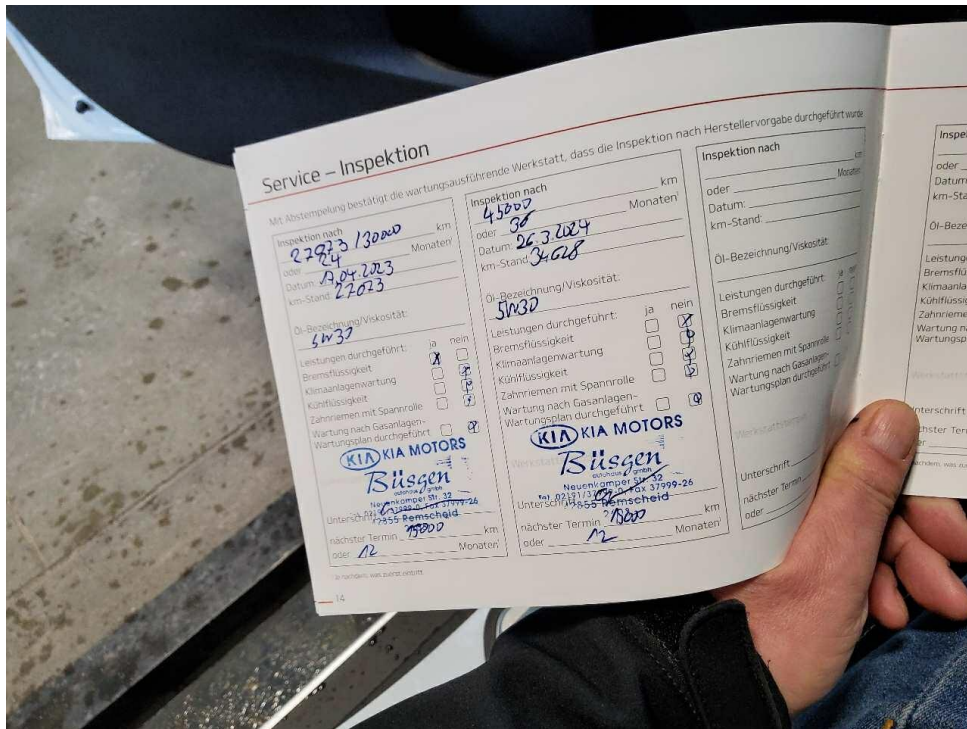 Service – Inspektion
Mit Abstempelung bestätigt die wartungsausführende Werkstatt, dass die Inspektion nach Herstellervorgabe durchgeführt wurde
Inspektion nach
27073 / 30000 km
oder 24 Monaten¹
Datum: 17.04.2023
km-Stand: 27073
Öl-Bezeichnung/Viskosität:
5W30
Leistungen durchgeführt: ja nein
Bremsflüssigkeit
Klimaanlagenwartung
Kühlflüssigkeit
Zahnriemen mit Spannrolle
Wartung nach Gasanlagen-
Wartungsplan durchgeführt
KIA KIA MOTORS
Büsgen
autohaus gmbh
Neuenkamper Str. 32
Tel. 02191/37999-0, Fax 37999-26
42855 Remscheid
Unterschrift
nächster Termin 15000 km
oder 12 Monaten¹
Inspektion nach
45000 km
oder 36 Monaten¹
Datum: 26.3.2024
km-Stand 34628
Öl-Bezeichnung/Viskosität:
5W30
Leistungen durchgeführt: ja nein
Bremsflüssigkeit
Klimaanlagenwartung
Kühlflüssigkeit
Zahnriemen mit Spannrolle
Wartung nach Gasanlagen-
Wartungsplan durchgeführt
KIA KIA MOTORS
Büsgen
autohaus gmbh
Neuenkamper Str. 32
Tel. 02191/37999-0, Fax 37999-26
42855 Remscheid
Unterschrift
nächster Termin 15000 km
oder 12 Monaten¹
Inspektion nach
km
oder Monaten¹
Datum:
km-Stand:
Öl-Bezeichnung/Viskosität:
Leistungen durchgeführt:
Bremsflüssigkeit
Klimaanlagenwartung
Kühlflüssigkeit
Zahnriemen mit Spannrolle
Wartung nach Gasanlagen-
Wartungsplan durchgeführt
Unterschrift
nächster Termin
oder
¹Je nachdem, was zuerst eintritt
14